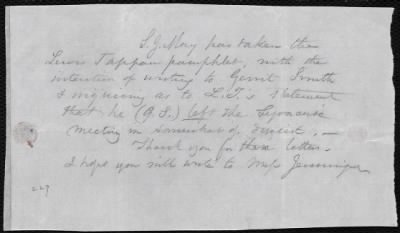 S. J. May has taken the
Lewis Tappan pamphlet, with the
intention of writing to Gerrit Smith
& inquiring as to L. T.'s statement
that he (G. S.) left the Syracuse
meeting in somewhat of
Thank you for these letters.
I hope you will write to
229